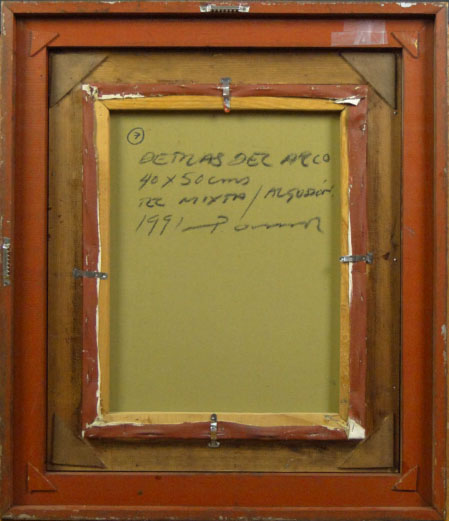 7
DETRAS DEL ARCO
40 X 50 cms
TEC MIXTA / ALGODÓN.
1991